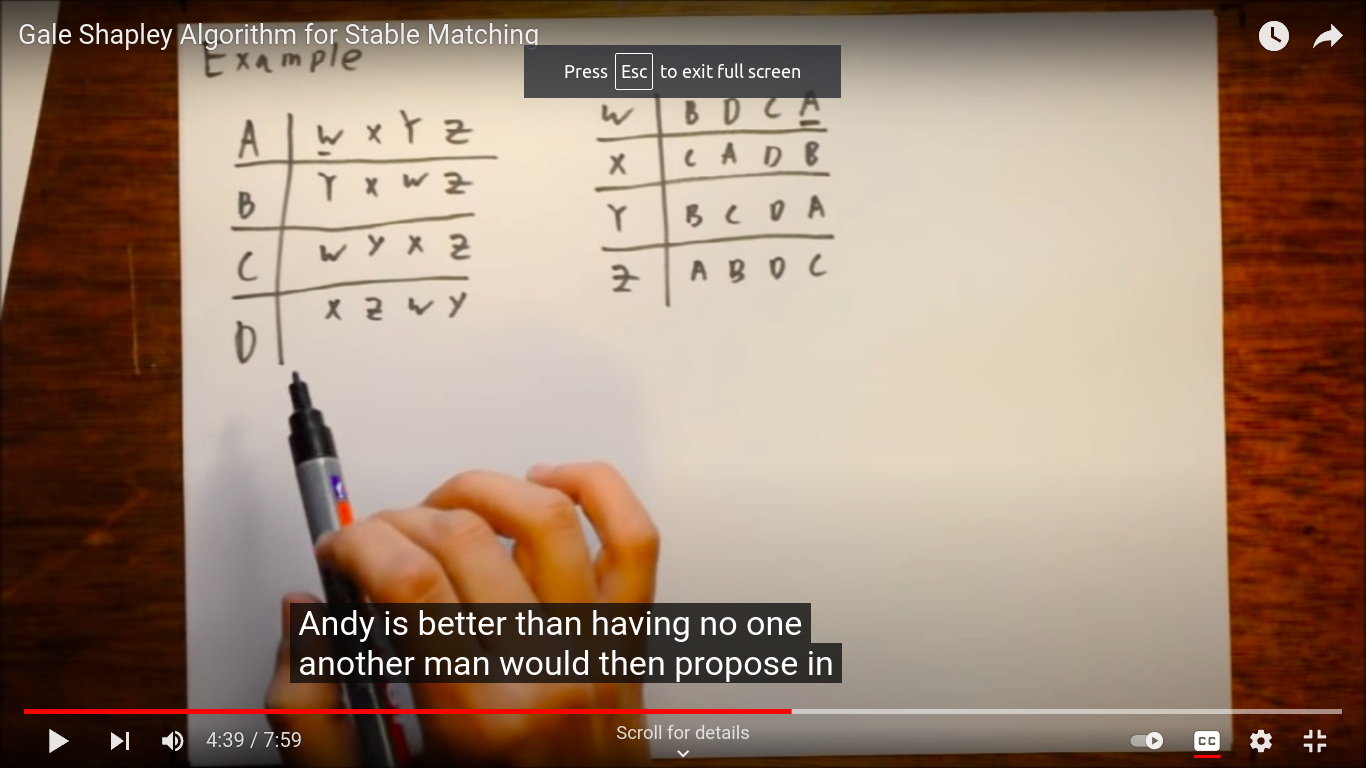 Gale Shapley Algorithm for Stable Matching
Example
Press Esc to exit full screen
A W X Y Z
B Y X W Z
C W Y X Z
D X Z W Y
W B D C A
X C A D B
Y B C D A
Z A B D C
Andy is better than having no one
another man would then propose in
4:39 / 7:59
Scroll for details
CC